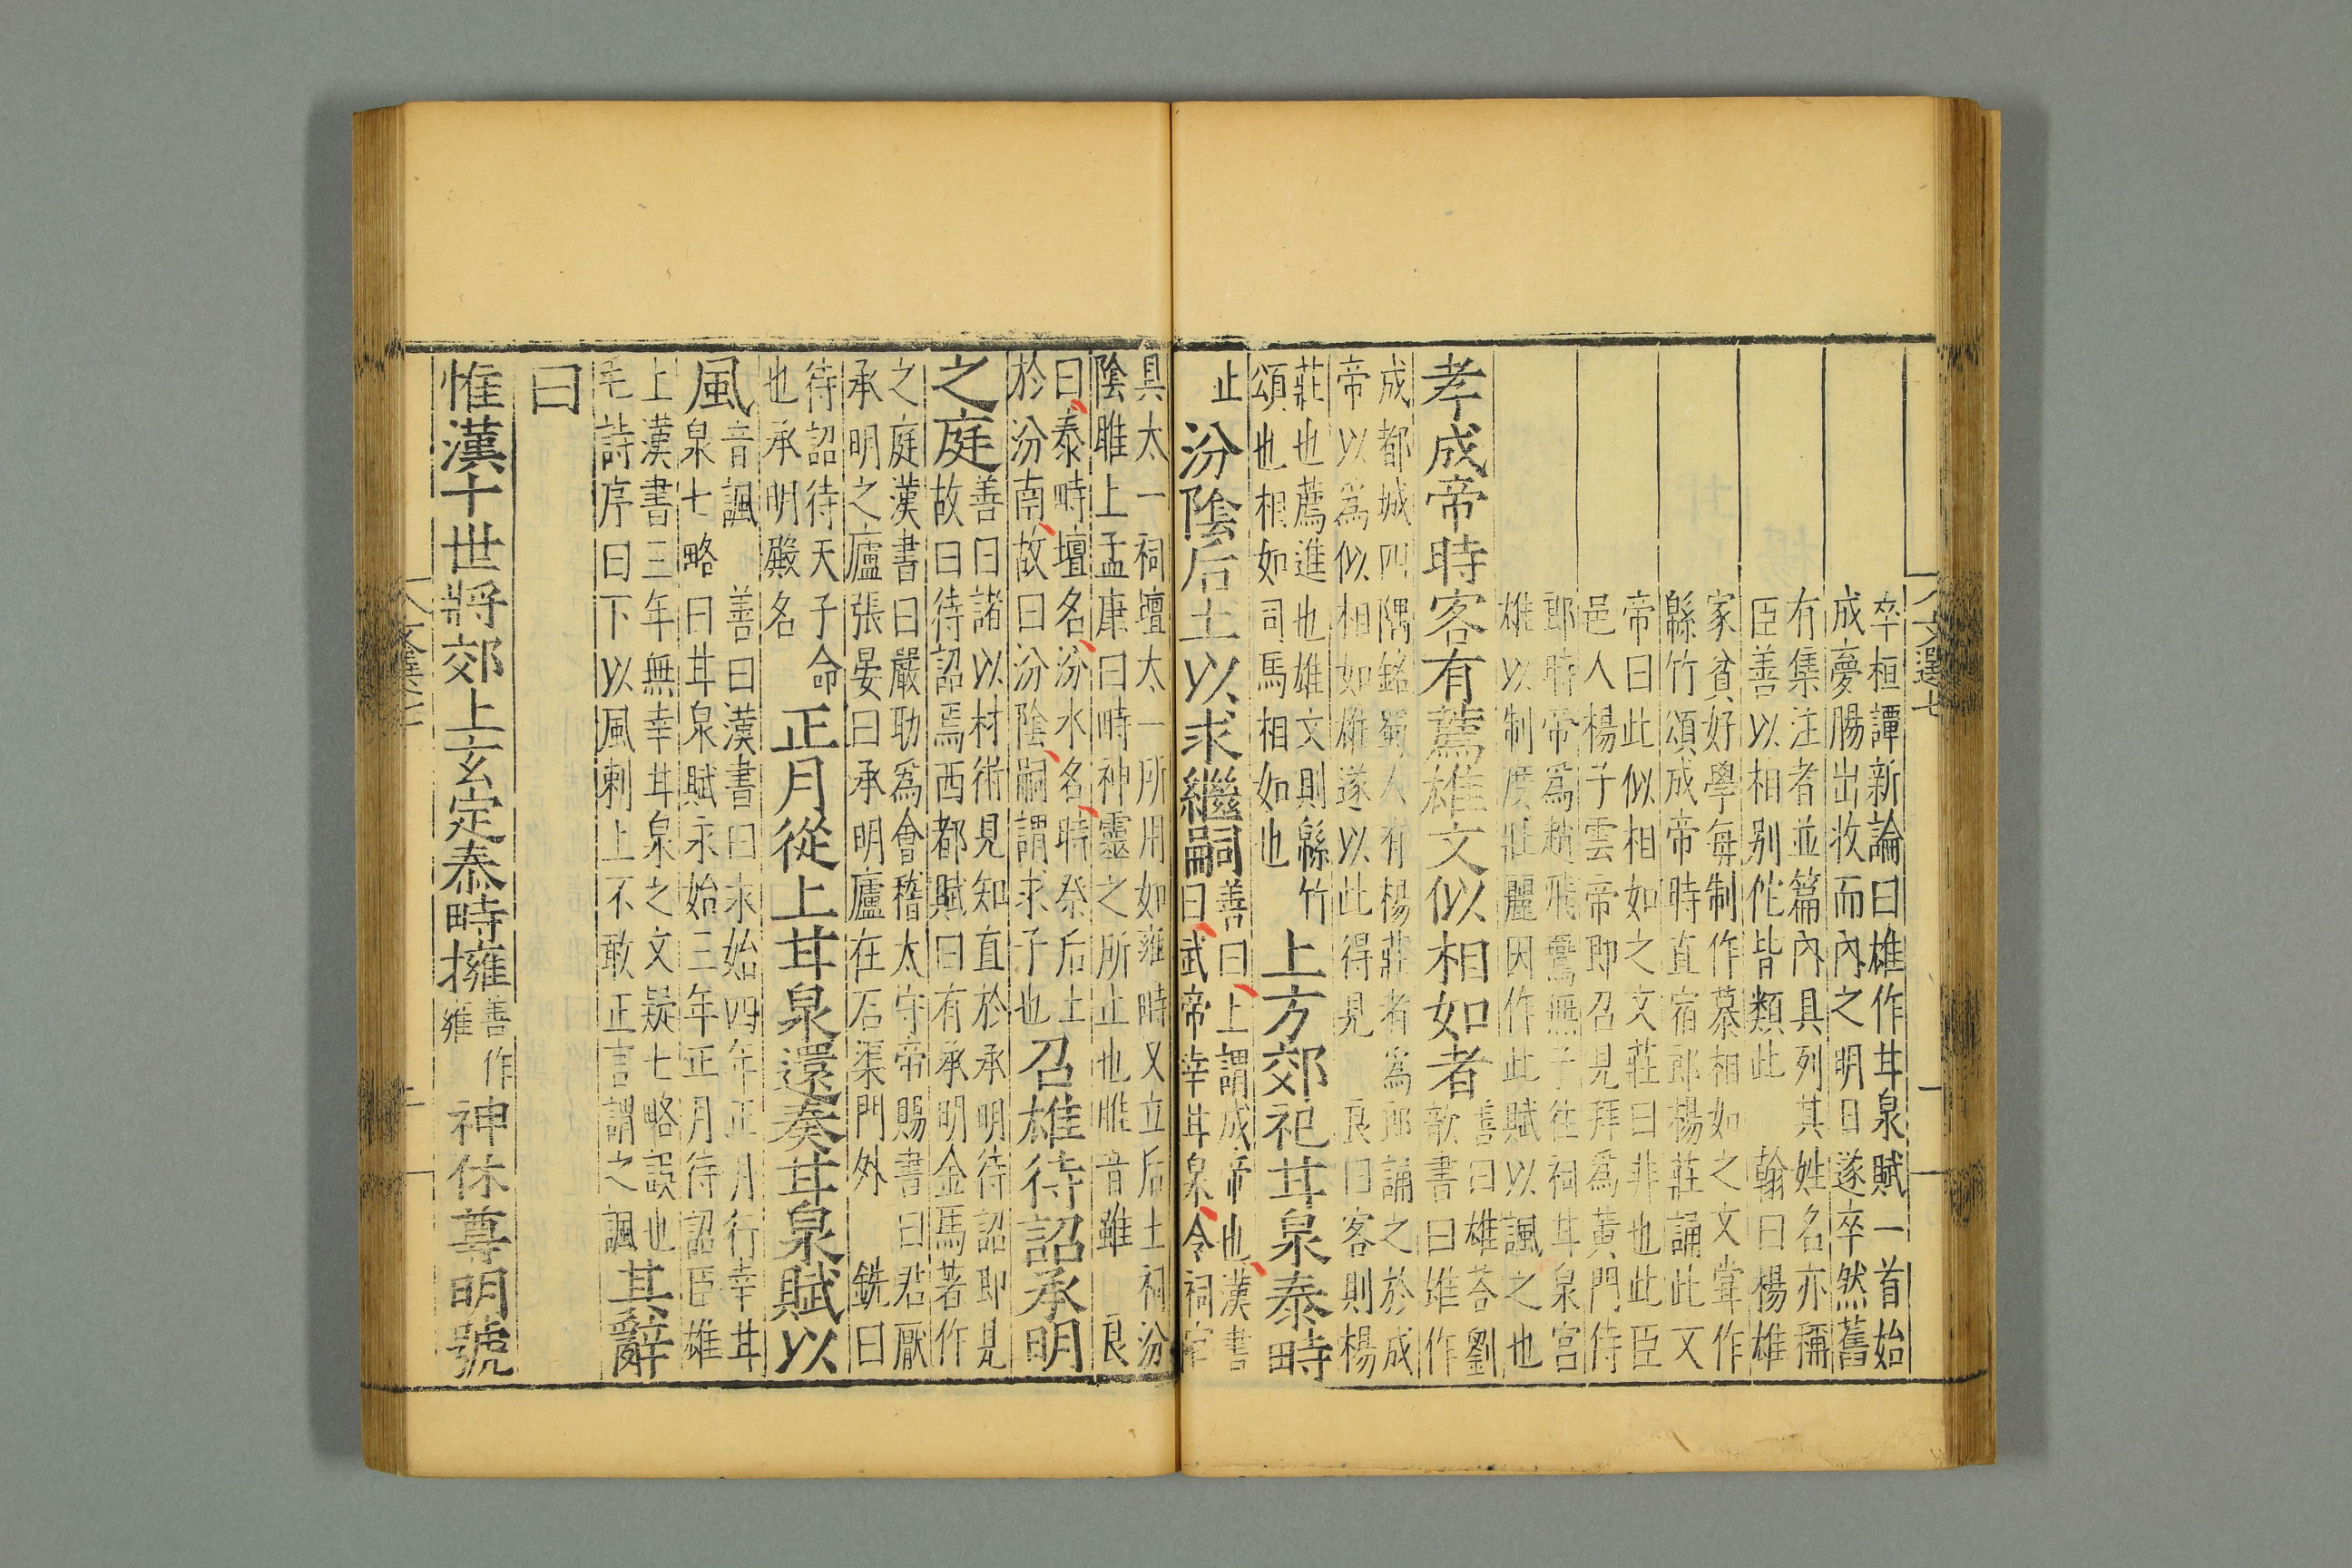 卒桓譚新論曰雄作甘泉賦一首始
成夢腸出收而內之明日遂卒然舊
有集注者並篇內具列其姓名亦稱
臣善以相別佗皆類此 翰曰楊雄
家貧好學每制作慕相如之文甞作
緜竹頌成帝時直宿郎楊莊誦此文
帝曰此似相如之文莊曰非也此臣
邑人楊子雲帝即召見拜爲黃門侍
郎時帝爲趙飛鷰無子往祠甘泉宮
雄以制度壯麗因作此賦以諷之也
孝成帝時客有薦雄文似相如者
善曰雄荅劉
歆書曰雄作
成都城四隅銘蜀人有楊莊者爲郎誦之於成
帝以爲似相如雄遂以此得見 良曰客則楊
莊也薦進也雄文則緜竹
頌也相如司馬相如也
上方郊祀甘泉泰畤
止
汾陰后土以求繼嗣
善曰上謂成帝也漢書
曰武帝幸甘泉令祠官
具太一祠壇太一所用如雍畤又立后土祠汾
陰脽上孟康曰畤神靈之所止也脽音雖 良
曰泰畤壇名汾水名畤祭后土
於汾南故曰汾陰嗣謂求子也
召雄待詔承明
之庭
善曰諸以材術見知直於承明待詔即見
故曰待詔焉西都賦曰有承明金馬著作
之庭漢書曰嚴助爲會稽太守帝賜書曰君厭
承明之廬張晏曰承明廬在石渠門外 銑曰
待詔待天子命
也承明殿名
正月從上甘泉還奏甘泉賦以
風
音諷 善曰漢書曰永始四年正月行幸甘
泉七略曰甘泉賦永始三年正月待詔臣雄
上漢書三年無幸甘泉之文疑七略誤也
毛詩序曰下以風刺上不敢正言謂之諷
其辭
曰
惟漢十世將郊上玄定泰畤擁
善作
雍
神休尊明號
文選七